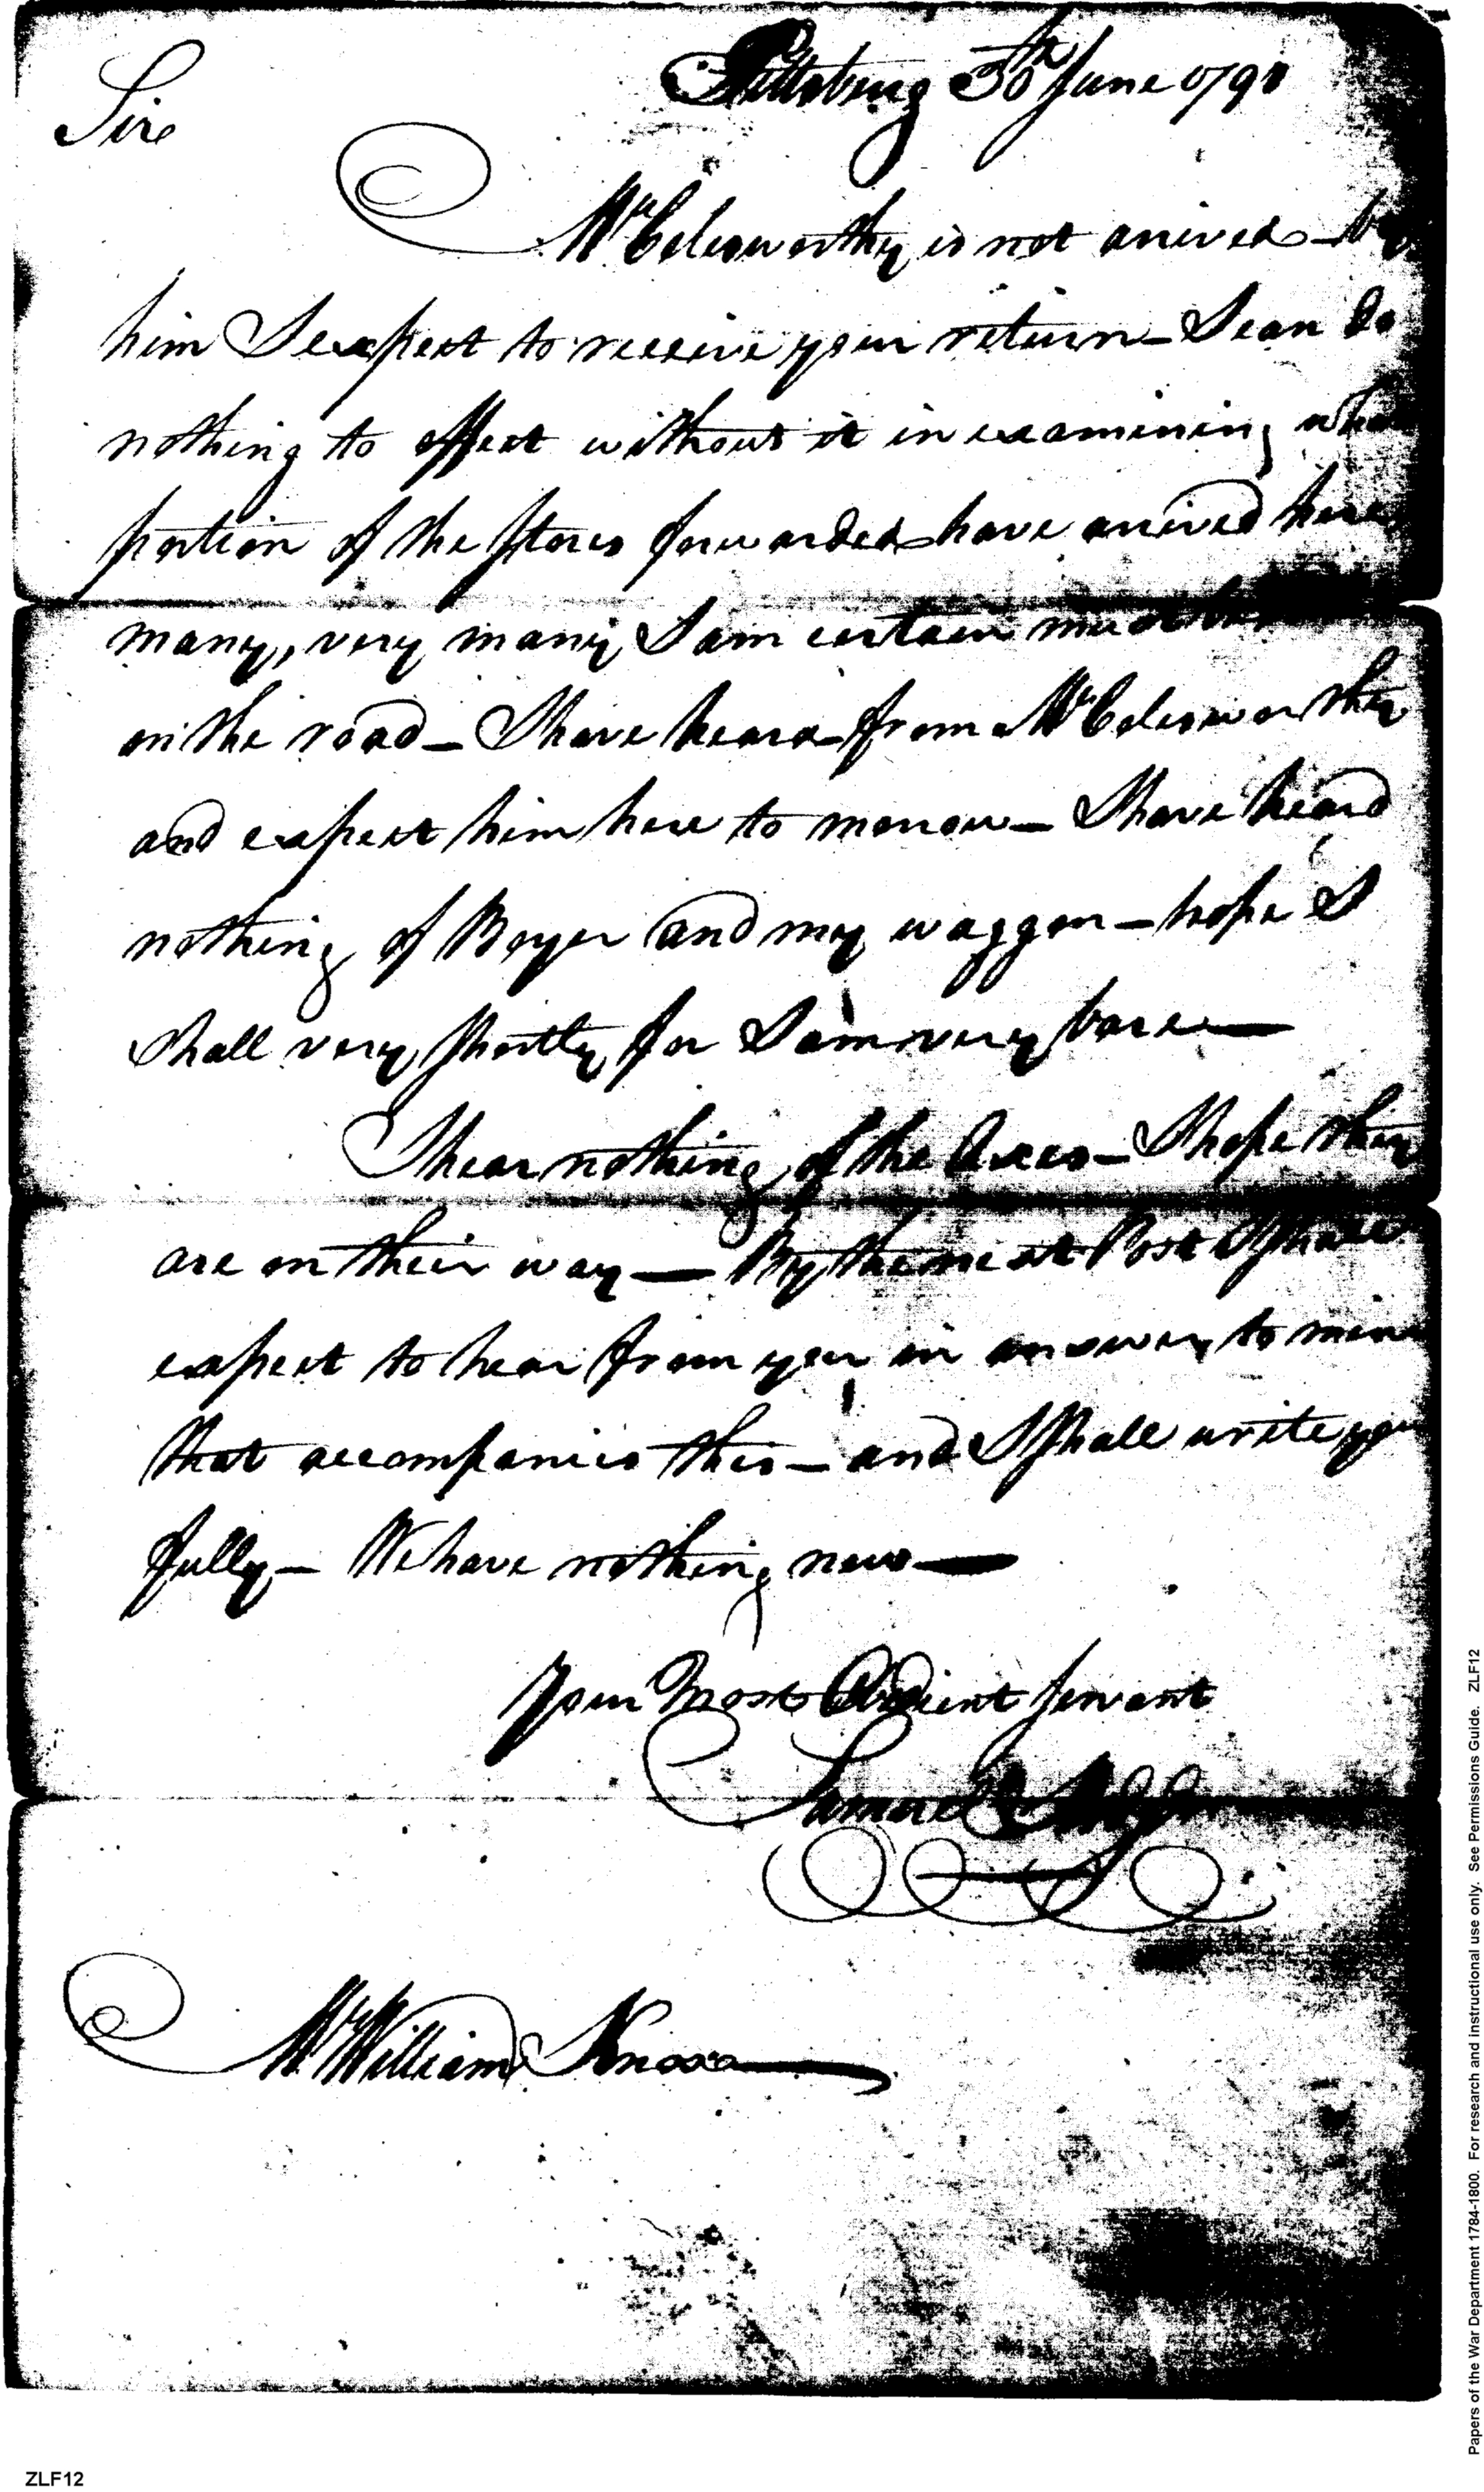 Pittsburg 30th June 1791
Sir
Mr Colesworthy is not arrived - by
him I expect to receive your return - I can do
nothing to effect without it in examining what
portion of the Stores forwarded have arrived here
many, very many, I am certain must be
on the road - I have heard from Mr Colesworthy
and expect him here to morrow - I have heard
nothing of Boyer and my waggon - hope I
shall very shortly, for I am very bare -
I hear nothing of the Axes - I hope they
are on their way - By the next Post I shall
expect to hear from you in answer to mine
that accompanies this - and I shall write you
fully - We have nothing new -
Your Most Obedient Servant
Samuel Hodgdon
Mr William Knox
Papers of the War Department 1784-1800. For research and instructional use only. See Permissions Guide. ZLF12
ZLF12